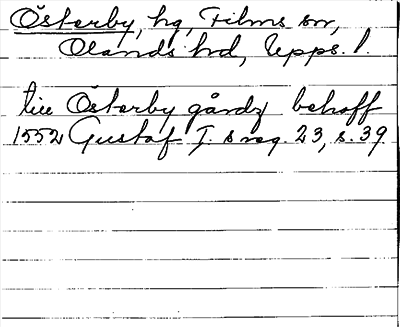 Österby, hg, Films sn,
Olands hd, Upps. l.
till Österby gårdz behoff
1552 Gustaf I. s reg. 23, s. 39